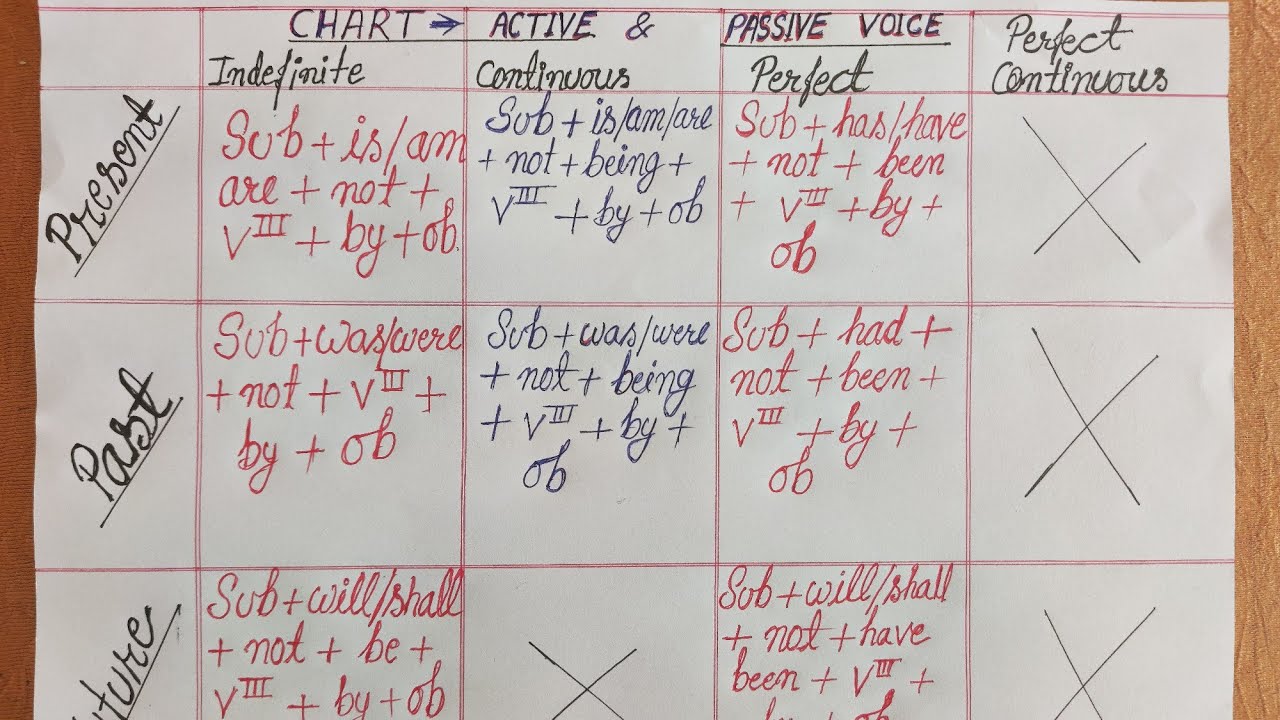 CHART → ACTIVE & PASSIVE VOICE
Indefinite
Continuous
Perfect
Perfect
Continuous
Present
Sub + is/am
are + not +
V III + by + ob.
Sub + is/am/are
+ not + being +
V III + by + ob
Sub + has/have
+ not + been
+ V III + by +
ob
Past
Sub + was/were
+ not + V III +
by + ob
Sub + was/were
+ not + being
+ V III + by +
ob
Sub + had +
not + been +
V III + by +
ob
uture
Sub + will/shall
+ not + be +
V III + by + ob
Sub + will/shall
+ not + have
been + V III +
by + ob